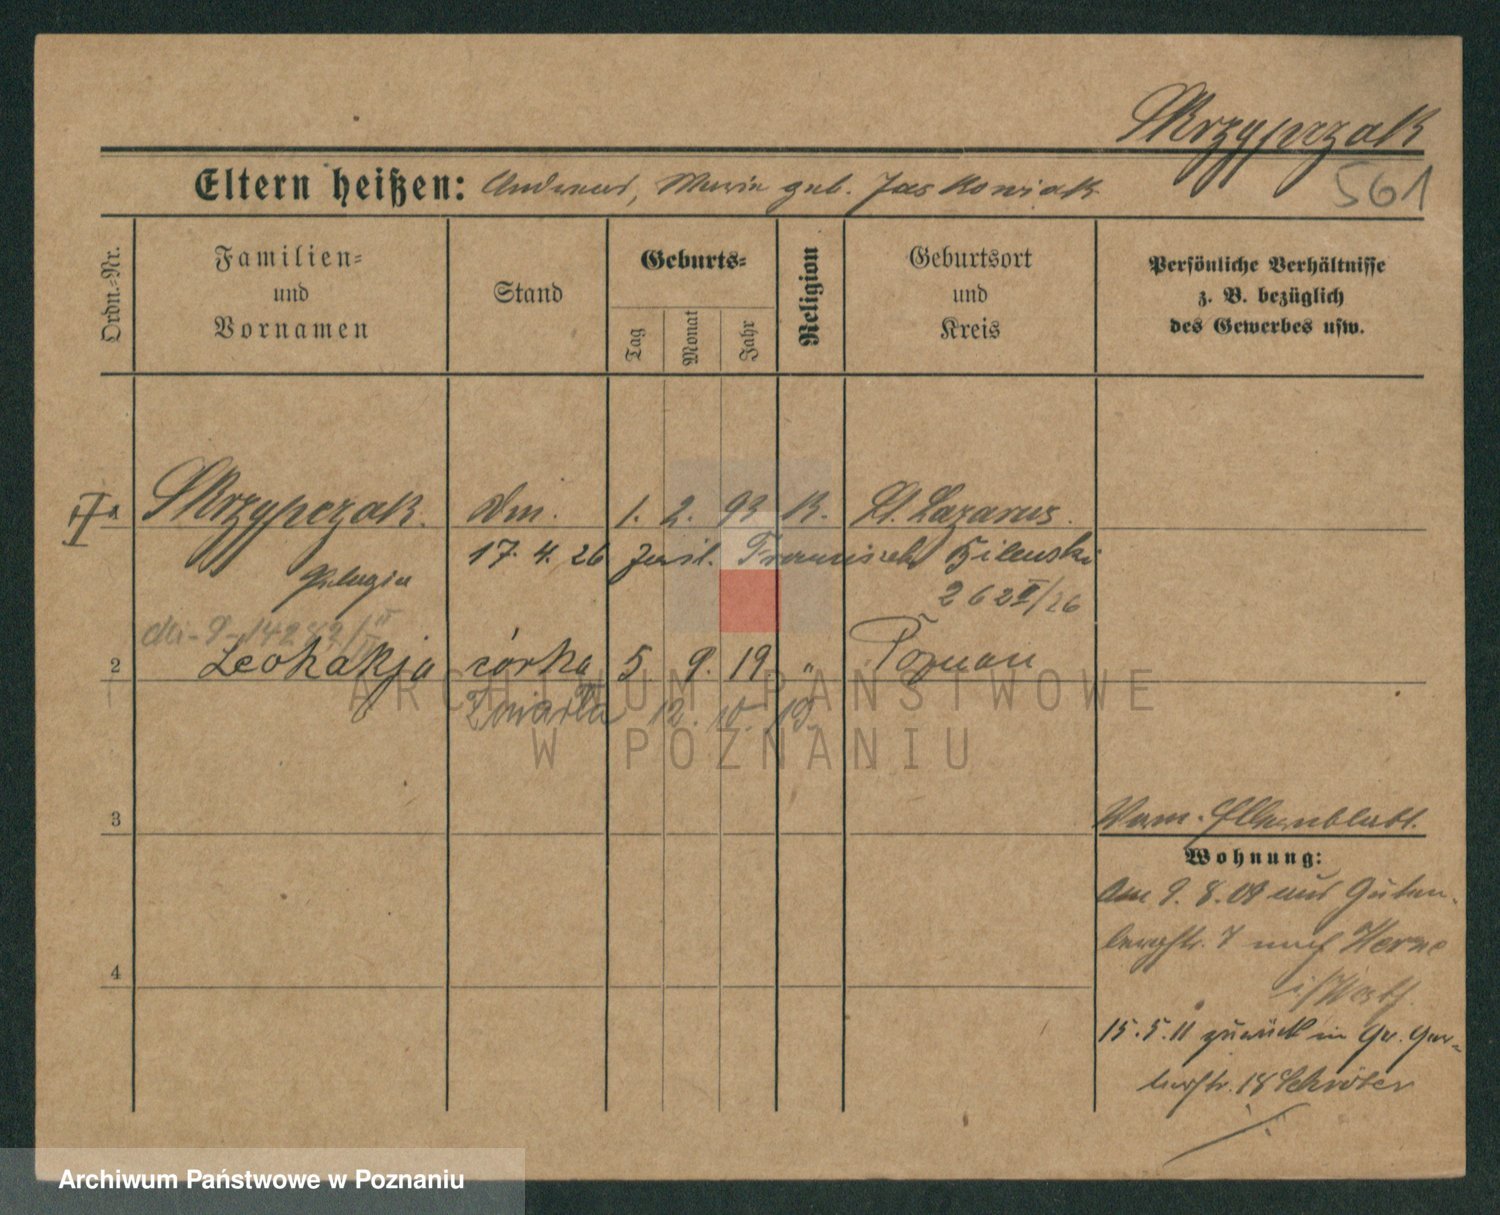 Skrzypczak
Eltern heißen: Andreas, Marie geb. Jaskowiak
561
Ordn.-Nr.
Familien-
und
Vornamen
Stand
Geburts-
Tag
Monat
Jahr
Religion
Geburtsort
und
Kreis
Persönliche Verhältnisse
z. B. bezüglich
des Gewerbes usw.
Skrzypczak. 1. 2. 93 K. St. Lazarus.
17. 4. 26 Franciszek
Pelagia 262 II/26
2 Leokadja córka 5 9. 19 " Poznań
Zmarła 12. 10. 19.
3
Wohnung:
Am 9. 8. 09 aus Guten-
bergstr. 7 nach Herne
i/Westf.
4
15. 5. 11 zurück in
18 Schröter
ARCHIWUM PAŃSTWOWE
W POZNANIU
Archiwum Państwowe w Poznaniu